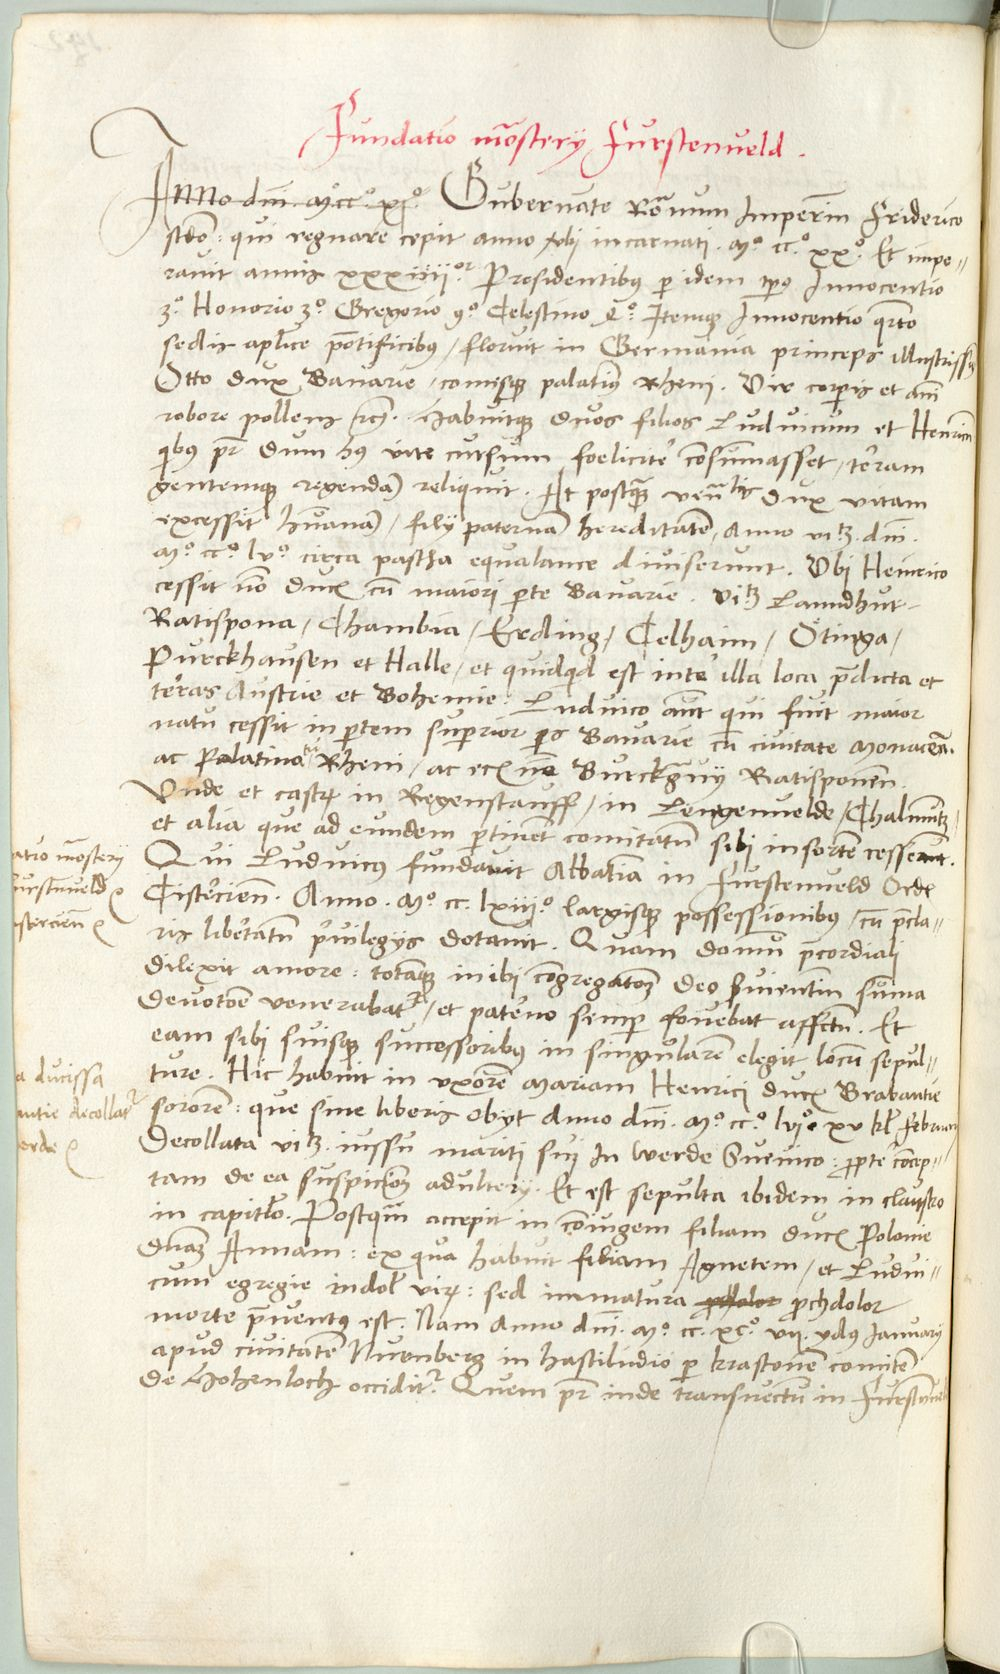 Fundatio mo̅stery Furstenueld.
Anno dni̅. Mº. ccº. xxº. Gubernante Ro̅anum Imperiu̅ Friderico
scd̅o: qui regnare cepit anno v̅bi incarnati. Mº. ccº. xxº. Et impe-
rauit annis xxxiiiior. Presidentibus per idem tp̅us Innocentio
3º. Honorio 3º. Gregorio 9º. Celestino 4º. Itemq̅ Innocentio qrto̅
sedis aplice̅ po̅tificibus / floruit in Germania princeps illustriss̅
Otto dux Bauarie / comesq̅ palatinus Rheni. Vir corp̅is et ani̅
robore pollens. Habuitq̅ duos filios Luduicum et Henricu̅
qibus pr̅ dum hus vite cursum foelicite̅r consum̅asset / te̅rram
gentemq̅ regenda̅ reliquit. At postq̅ dux vitam
excessit hu̅ana̅ / filij paterna̅ hereditate̅, Anno dni̅.
Mº. ccº. lvº. circa pascha equalance diuiserunt. Vbi Heinrico
cessit no̅ duc̅ cu̅ maiori p̅te Bauarie. Lanndhut-
Ratispona / Chambia / Erding / Celhaim / Ötinga /
Purckhausen et Halle / et quidq̅d est inte̅r illa loca p̅dicta et
te̅rras Austrie et Bohemie. Luduico aut̅ qui fuit maior
natu cessit in p̅tem superior ps̅ Bauarie cu̅ ciuitate Monacen̅.
ac Palatinatu Rheni / ac Burckgrauij Ratisponen̅.
Vnde et castr̅ in Regenstauff / in Lengenuelde / Chalmu̅tz /
et alia que ad eundem p̅tinet̅ comitatu̅ sibi in sorte̅ cesserunt.
Qui Luduicus fundauit Abbatia̅ in Furstenueld Ord̅
Cistercien̅. Anno. Mº. cc. lxiijº. largisq̅ possessionibus / cu̅ p̅cla-
ris libe̅rtatu̅ p̅uilegijs dotauit. Quam domu̅ p̅cordiali
dilexit amore: totamq̅ inibi co̅gregato̅m deo s̅uientiu̅ su̅ma
deuoto̅e venerabatr / et pate̅rno semp̅ fouebat affctu̅. Et
eam sibi suisq̅ successoribus in singulare̅ elegit locu̅ sepul-
ture. Hic habuit in vxore̅ Mariam Henrici duc̅ Brabantie
sorore̅: que sine liberis obijt Anno dni̅. Mº. ccº. lviº. xv kl̅ Februarij
Decollata iussu mariti sui In Werde Sueuico: p̅pte̅r co̅cep-
tam de ea suspicio̅m adulterij. Et est sepulta ibidem in claustro
in capitlo̅. Postq̅m accepit in co̅iugem filiam duc̅ Polonie
dna̅m Annam: ex qua habuit filiam Agnetem / et Ludui-
cum egregie indol̅ vir̅: sed immatura prochdolor
morte p̅uentus est. Nam Anno dni̅. Mº. cc. xcº. vij. ydus Januarij
apud ciuitate̅ Nurenberg in hastiludio p̅ krastonem comite̅
de Hohenloch occiditr. Quem pr̅ inde transuectu̅ in Furste̅ue
atio mo̅stery
urstenueld
stercien̅
a ducissa
antie decollatr
erde